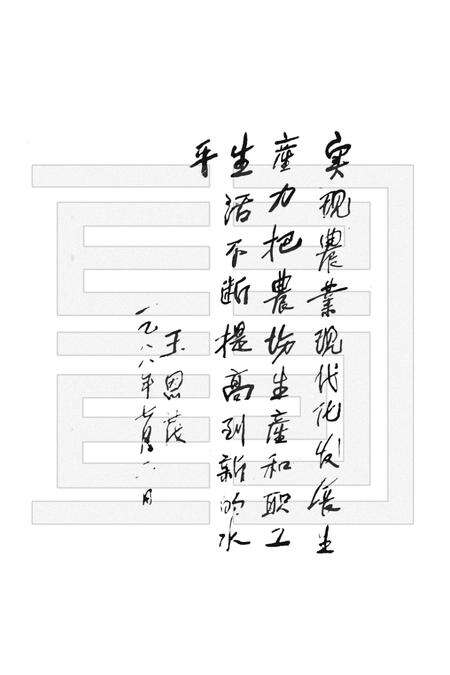 实现農業现代化发展生
產力把農场生產和职工
生活不断提高到新的水
平
王恩茂
一九八八年七月一日